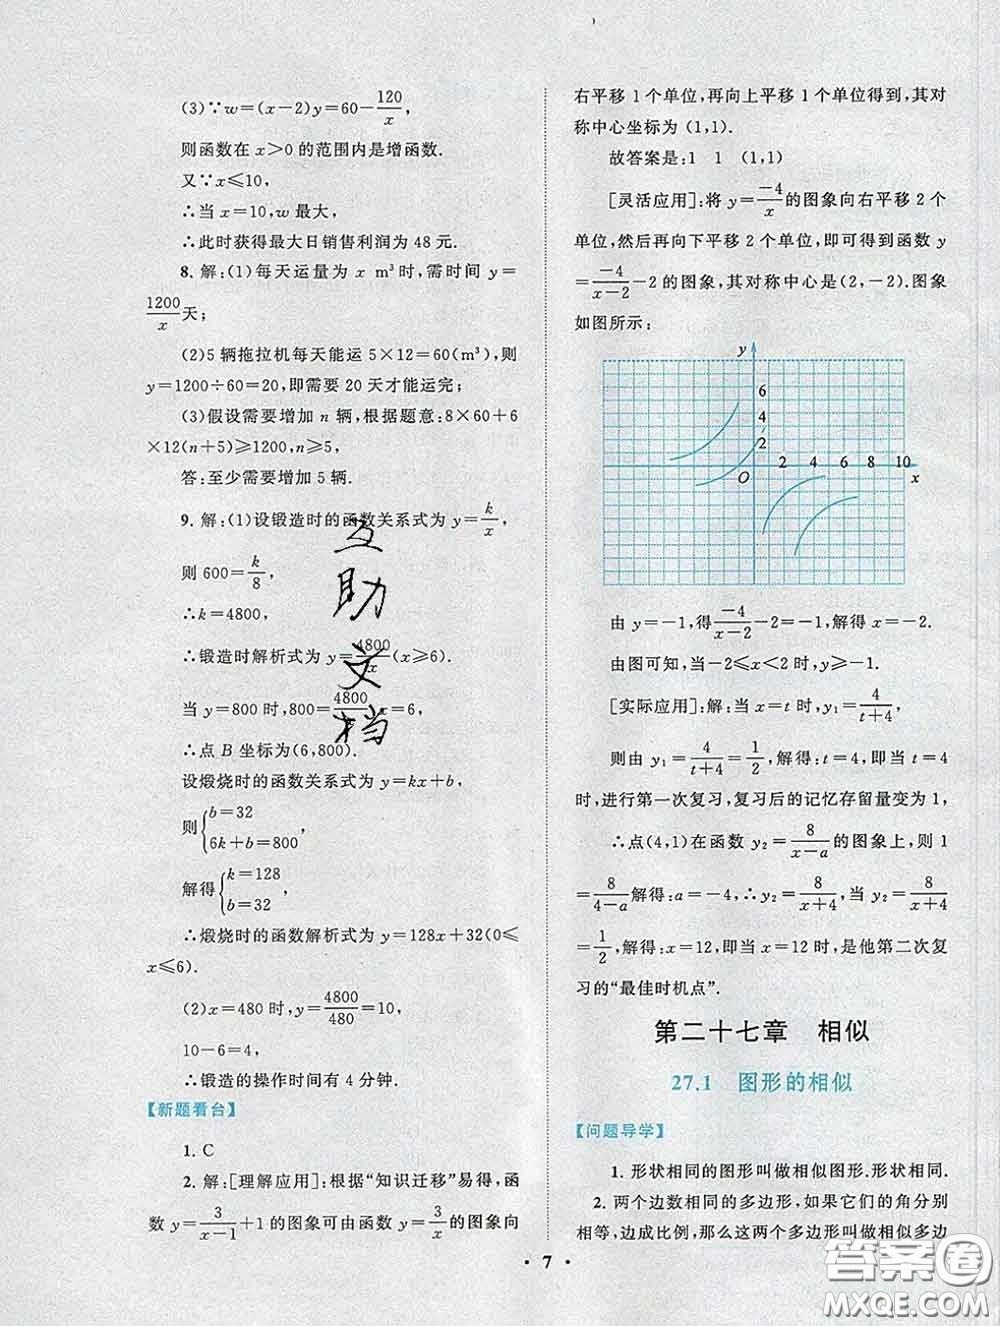 (3)∵w=(x−2)y=60−120/x,
则函数在 x>0 的范围内是增函数.
又∵x≤10,
∴当 x=10,w 最大,
∴此时获得最大日销售利润为 48 元.
8. 解:(1)每天运量为 x m³时,需时间 y=
1200/x天;
(2)5 辆拖拉机每天能运 5×12=60(m³),则
y=1200÷60=20,即需要 20 天才能运完;
(3)假设需要增加 n 辆,根据题意:8×60+6
×12(n+5)≥1200,n≥5,
答:至少需要增加 5 辆.
9. 解:(1)设锻造时的函数关系式为 y=k/x,
则 600=k/8,
∴k=4800,
∴锻造时解析式为 y=4800/x(x≥6).
当 y=800 时,800=4800/x,x=6,
∴点 B 坐标为(6,800).
设煅烧时的函数关系式为 y=kx+b,
则{b=32
6k+b=800,
解得{k=128
b=32
∴煅烧时的函数解析式为 y=128x+32(0≤
x≤6).
(2)x=480 时,y=4800/480=10,
10−6=4,
∴锻造的操作时间有 4 分钟.
【新题看台】
1. C
2. 解:[理解应用]:根据“知识迁移”易得,函
数 y=3/(x−1)+1 的图象可由函数 y=3/x的图象向
右平移 1 个单位,再向上平移 1 个单位得到,其对
称中心坐标为 (1,1).
故答案是:1 1 (1,1)
[灵活应用]:将 y=−4/x的图象向右平移 2 个
单位,然后再向下平移 2 个单位,即可得到函数 y
=−4/(x−2)−2 的图象,其对称中心是(2,−2).图象
如图所示:
y
6
4
2
O
2 4 6 8 10
x
由 y=−1,得−4/(x−2)−2=−1,解得 x=−2.
由图可知,当−2≤x<2 时,y≥−1.
[实际应用]:解:当 x=t 时,y₁=4/(t+4),
则由 y₁=4/(t+4)=1/2,解得:t=4,即当 t=4
时,进行第一次复习,复习后的记忆存留量变为 1,
∴点(4,1)在函数 y₂=8/(x−a)的图象上,则 1
=8/(4−a)解得:a=−4,∴y₂=8/(x+4),当 y₂=8/(x+4)
=1/2,解得:x=12,即当 x=12 时,是他第二次复
习的“最佳时机点”.
第二十七章 相似
27.1 图形的相似
【问题导学】
1. 形状相同的图形叫做相似图形.形状相同.
2. 两个边数相同的多边形,如果它们的角分别
相等,边成比例,那么这两个多边形叫做相似多边
· 7 ·
互助文档
答案圈
MXQE.COM